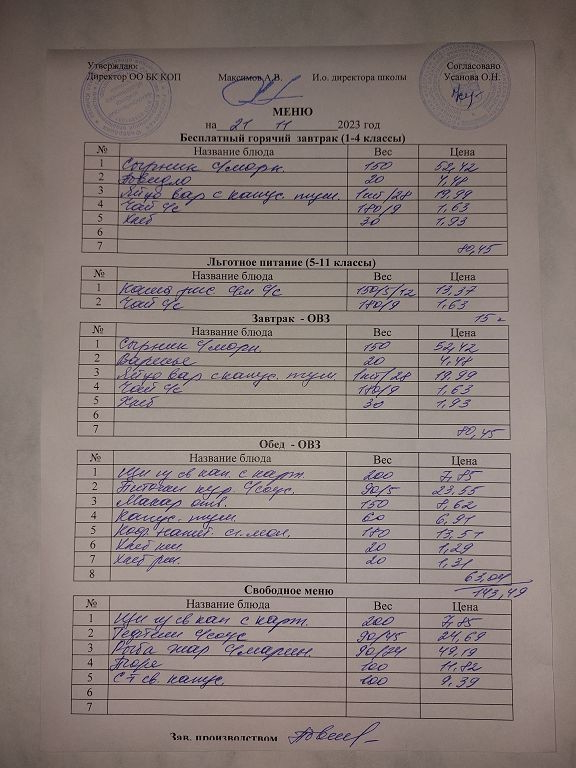 Утверждаю: Согласовано
Директор ОО БК КОП Максимов А.В. И.о. директора школы Усанова О.Н.
МЕНЮ
на 21 11 2023 год
Бесплатный горячий завтрак (1-4 классы)
№ Название блюда Вес Цена
1 Сырник с/морк. 150 52,42
2 Повидло 20 4,48
3 Яйцо вар с капус. туш. 1шт/28 19,99
4 Чай с/с 180/9 1,63
5 Хлеб 30 1,93
6
7 80,45
Льготное питание (5-11 классы)
№ Название блюда Вес Цена
1 Каша рис с/м с/с 150/5/12 13,37
2 Чай с/с 180/9 1,63
Завтрак - ОВЗ 15
№ Название блюда Вес Цена
1 Сырник с/морк. 150 52,42
2 Варенье 20 4,48
3 Яйцо вар с капус. туш. 1шт/28 19,99
4 Чай с/с 180/9 1,63
5 Хлеб 30 1,93
6
7 80,45
Обед - ОВЗ
№ Название блюда Вес Цена
1 Щи из св кап. с карт. 200 7,85
2 кур. с/соус. 90/5 23,55
3 Макар отв. 150 8,62
4 Капус. туш. 60 6,91
5 Коф. напит. сг. мол. 180 13,51
6 Хлеб пш. 20 1,29
7 Хлеб рж. 20 1,31
8 63,04
143,49
Свободное меню
№ Название блюда Вес Цена
1 Щи из св кап с карт. 200 7,85
2 Тефтели с/соус 90/45 24,69
3 Рыба жар с/марин. 90/74 49,19
4 Пюре 100 11,82
5 С-т св. капус. 100 9,39
6
7
Зав. производством